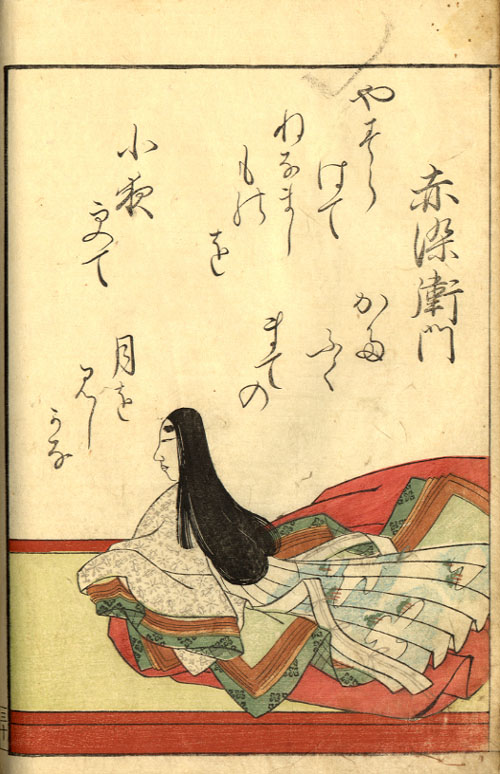 赤染衛門
やすら
はて
ねなまし
もの
を
小夜
更て
かた
ふく
まての
月を
みし
かな
三十